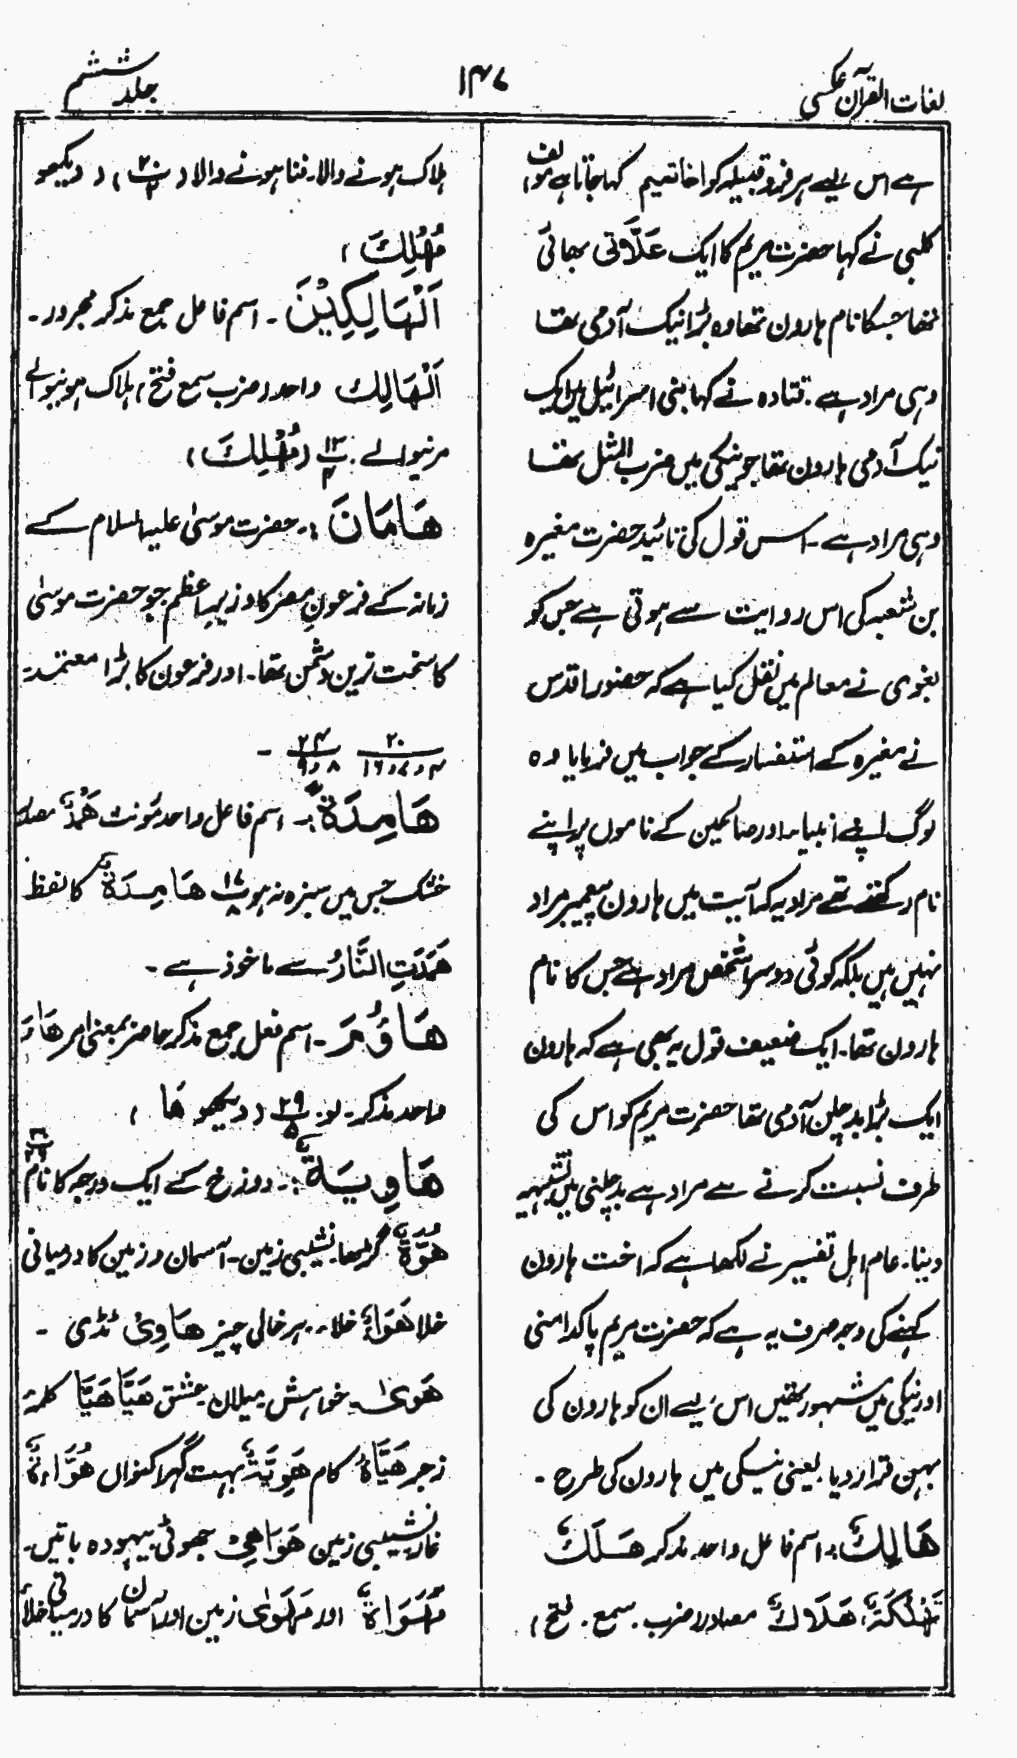 لغات القرآن عکسی
۱۴۷
جلد ششم
ہے اس لیے ہر فرد قبیلہ کو اخا تمیم کہا جاتا ہے مولف
کلبی نے کہا حضرت مریم کا ایک عَلَّاتی بھائی
تھا جسکا نام ہارون تھا وہ بڑا نیک آدمی تھا
وہی مراد ہے۔ قتادہ نے کہا بنی اسرائیل میں ایک
نیک آدمی ہارون تھا جو نیکی میں ضرب المثل تھا
وہی مراد ہے۔ اس قول کی تائید حضرت مغیرہ
بن شعبہ کی اس روایت سے ہوتی ہے جس کو
بغوی نے معالم میں نقل کیا ہے کہ حضور اقدس
نے مغیرہ کے استفسار کے جواب میں فرمایا وہ
لوگ اپنے انبیاء اور صالحین کے ناموں پر اپنے
نام رکھتے تھے مراد یہ کہ آیت میں ہارون پیغمبر مراد
نہیں ہیں بلکہ کوئی دوسرا شخص مراد ہے جس کا نام
ہارون تھا۔ ایک ضعیف قول یہ بھی ہے کہ ہارون
ایک بڑا بدچلن آدمی تھا حضرت مریم کو اس کی
طرف نسبت کرنے سے مراد ہے بدچلنی میں تشبیہ
دینا۔ عام اہل تفسیر نے لکھا ہے کہ اخت ہارون
کہنے کی وجہ صرف یہ ہے کہ حضرت مریم پاکدامنی
اور نیکی میں مشہور تھیں اس لیے ان کو ہارون کی
بہن قرار دیا یعنی نیکی میں ہارون کی طرح۔
ھَالِكٌ: اسم فاعل واحد مذکر ھَلَكٌ
تَهْلُكَةٌ، هَلَاكٌ مصادر ضرب۔ سمع۔ فتح)
ہلاک ہونے والا، فنا ہونے والا (ب ۲۰) (دیکھو
مُهْلِكَ)
اَلْهَالِكِيْنَ۔ اسم فاعل جمع مذکر مجرور۔
اَلْهَالِك واحد (ضرب سمع فتح) ہلاک ہونیوالے
مرنیوالے۔ ۱۳/۴ (مُهْلِكَ)
هَامَانَ:۔ حضرت موسیٰ علیہ السلام کے
زمانہ کے فرعونِ مصر کا وزیرِاعظم جو حضرت موسیٰ
کا سخت ترین دشمن تھا۔ اور فرعون کا بڑا معتمد۔
۲۰/۴ و ۷ و ۱۶ ۲۴/۸ و ۹ ۔
هَامِدَةً:۔ اسم فاعل واحد مؤنث هَمْدٌ مصدر
خشک جس میں سبزہ نہ ہو ۱۷/۸ هَامِدَةٌ کا لفظ
هَمَدَتِ النَّارُ سے ماخوذ ہے۔
هَاؤُمَ۔ اسم فعل جمع مذکر حاضر بمعنی امر هَاءَ
واحد مذکر۔ لو۔ ۲۹/۵ (دیکھو هَا)
هَاوِيَةٌ:۔ دوزخ کے ایک درجہ کا نام
هُوَّةٌ گڑھا نشیبی زمین۔ آسمان و زمین کا درمیانی
خلا هَوَاءٌ خلاء، ہر خالی چیز هَاوِیٌ ٹڈی۔
هَوىٰ۔ خواہش میلان عشق هَيَّا هَيَّا کلمۂ
زجر هَيَّاهُ کام هَوِيَّةٌ بہت گہرا کنواں هُوَّاءَةٌ
غار، نشیبی زمین هَوَاهِیْ جھوٹی بیہودہ باتیں۔
مَهْوَاةٌ اور مَهْوٰی زمین اور آسمان کا درمیانی خلأ